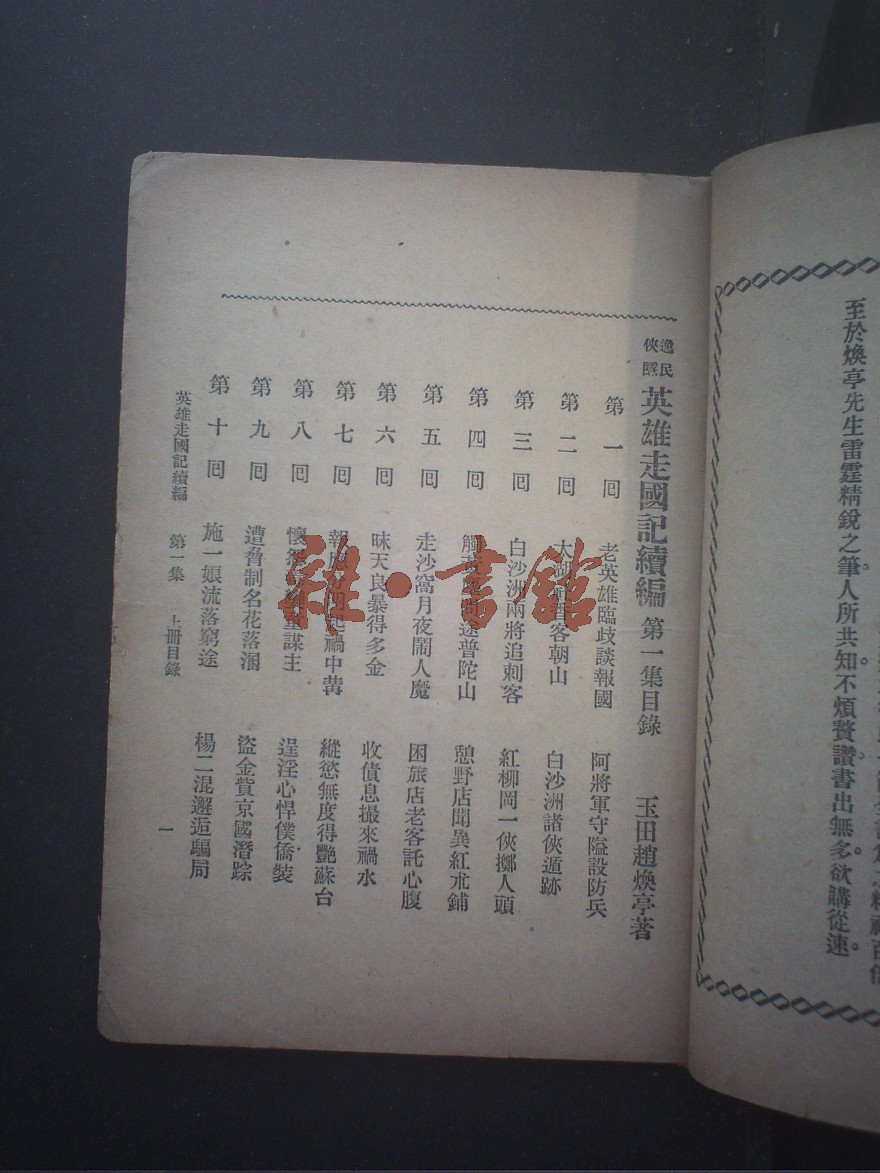 至於煥亭先生雷霆精銳之筆人所共知不煩贅讚書出無多欲購從速。
逸民
俠隱
英雄走國記續編 第一集目錄 玉田趙煥亭著
第一回 老英雄臨歧談報國 阿將軍守隘設防兵
第二回 太湖 客朝山 白沙洲諸俠遁跡
第三回 白沙洲兩將追刺客 紅柳岡一俠擲人頭
第四回 觸 途普陀山 憩野店聞異紅朮鋪
第五回 走沙窩月夜鬧人魔 困旅店老客託心腹
第六回 昧天良暴得多金 收債息撮來禍水
第七回 報應 起禍中冓 縱慾無度得艷蘇台
第八回 懷 謀主 逞淫心悍僕僑裝
第九回 遭脅制名花落溷 盜金貲京國潛踪
第十回 施一娘流落窮途 楊二混邂逅騙局
英雄走國記續編 第一集 上冊目錄 一
雜·書館